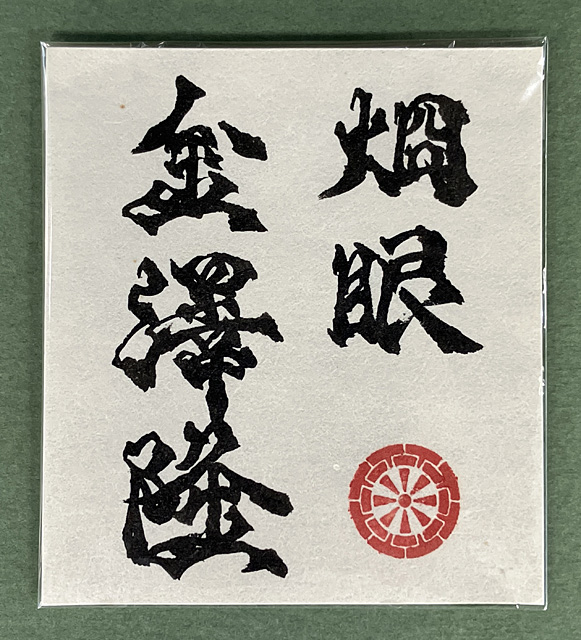 烱眼
金澤隆